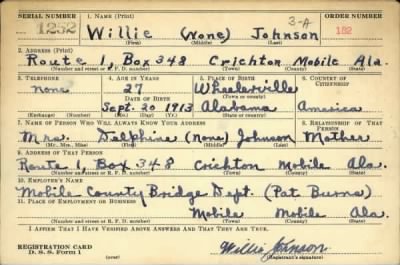 SERIAL NUMBER 1. NAME (Print) ORDER NUMBER
1252 Willie (None) Johnson 3-A 182
(First) (Middle) (Last)
2. ADDRESS (Print)
Route 1, Box 348 Crichton Mobile Ala.
(Number and street or R. F. D. number) (Town) (County) (State)
3. TELEPHONE 4. AGE IN YEARS 5. PLACE OF BIRTH 6. COUNTRY OF CITIZENSHIP
none 27 Wheelerville
DATE OF BIRTH (Town or county)
Sept. 20 1913 Alabama America
(Exchange) (Number) (Mo.) (Day) (Yr.) (State or country)
7. NAME OF PERSON WHO WILL ALWAYS KNOW YOUR ADDRESS 8. RELATIONSHIP OF THAT PERSON
Mrs. Delphine (None) Johnson Mother
(Mr., Mrs., Miss) (First) (Middle) (Last)
9. ADDRESS OF THAT PERSON
Route 1, Box 348 Crichton Mobile Ala.
(Number and street or R. F. D. number) (Town) (County) (State)
10. EMPLOYER'S NAME
Mobile County Bridge Dept. (Pat Burns)
11. PLACE OF EMPLOYMENT OR BUSINESS
Mobile Mobile Ala.
(Number and street or R. F. D. number) (Town) (County) (State)
I AFFIRM THAT I HAVE VERIFIED ABOVE ANSWERS AND THAT THEY ARE TRUE.
REGISTRATION CARD
D. S. S. Form 1 Willie Johnson
(Registrant's signature)